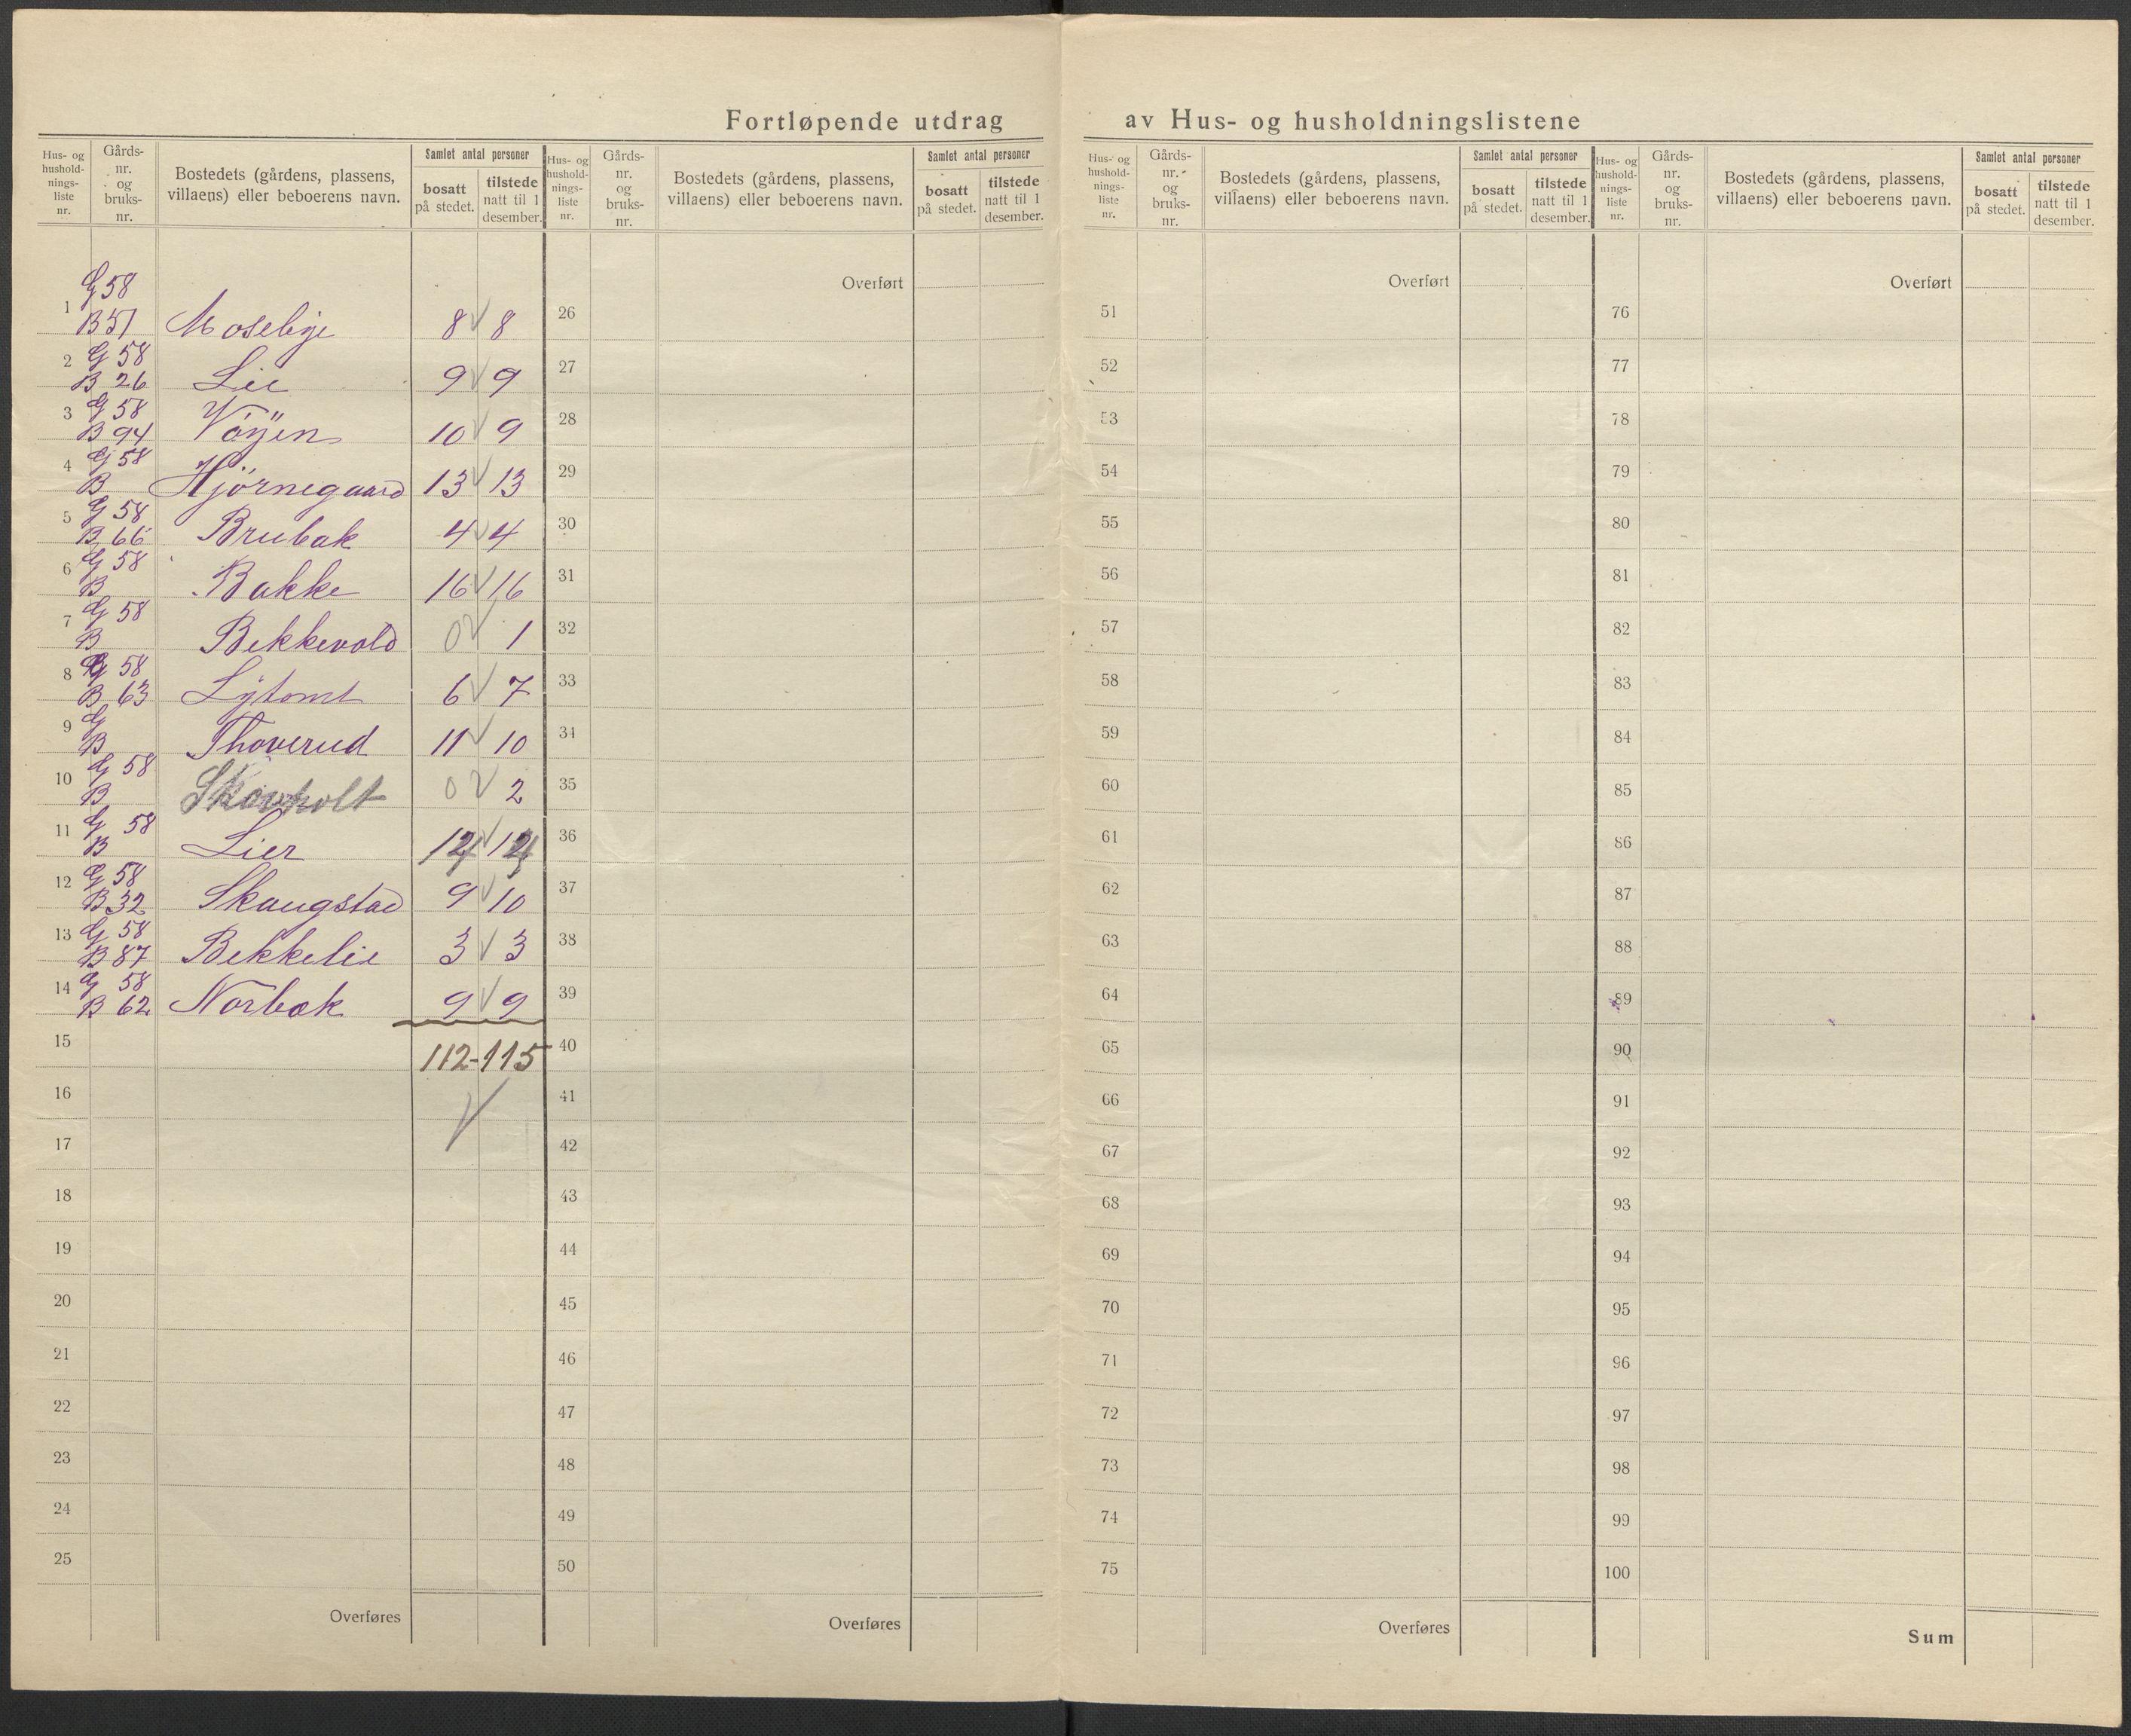 Fortløpende utdrag av Hus- og husholdningslistene
Hus- og hushold-nings-liste nr.
Gårds-nr. og bruks-nr.
Bostedets (gårdens, plassens, villaens) eller beboerens navn.
Samlet antal personer
bosatt på stedet.
tilstede natt til 1 desember.
1 G 58 B 51 Moseby 8 8
2 G 58 B 26 Lie 9 9
3 G 58 B 94 Vøyen 10 9
4 G 58 B Hjørnegaard 13 13
5 G 58 B 66 Brubak 4 4
6 G 58 B Bakke 16 16
7 G 58 B Bekkevold 0 1
8 G 58 B 63 Lytomt 6 7
9 G B Thoverud 11 10
10 G 58 B Skovholt 0 2
11 G 58 B Lier 14 14
12 G 58 B 32 Skaugstad 9 10
13 G 58 B 87 Bekkelie 3 3
14 G 58 B 62 Norbæk 9 9
15 112-115
16
17
18
19
20
21
22
23
24
25
Overføres
Hus- og hushold-nings-liste nr.
Gårds-nr. og bruks-nr.
Bostedets (gårdens, plassens, villaens) eller beboerens navn.
Samlet antal personer
bosatt på stedet.
tilstede natt til 1 desember.
Overført
26
27
28
29
30
31
32
33
34
35
36
37
38
39
40
41
42
43
44
45
46
47
48
49
50
Overføres
Hus- og hushold-nings-liste nr.
Gårds-nr. og bruks-nr.
Bostedets (gårdens, plassens, villaens) eller beboerens navn.
Samlet antal personer
bosatt på stedet.
tilstede natt til 1 desember.
Overført
51
52
53
54
55
56
57
58
59
60
61
62
63
64
65
66
67
68
69
70
71
72
73
74
75
Overføres
Hus- og hushold-nings-liste nr.
Gårds-nr. og bruks-nr.
Bostedets (gårdens, plassens, villaens) eller beboerens navn.
Samlet antal personer
bosatt på stedet.
tilstede natt til 1 desember.
Overført
76
77
78
79
80
81
82
83
84
85
86
87
88
89
90
91
92
93
94
95
96
97
98
99
100
Sum